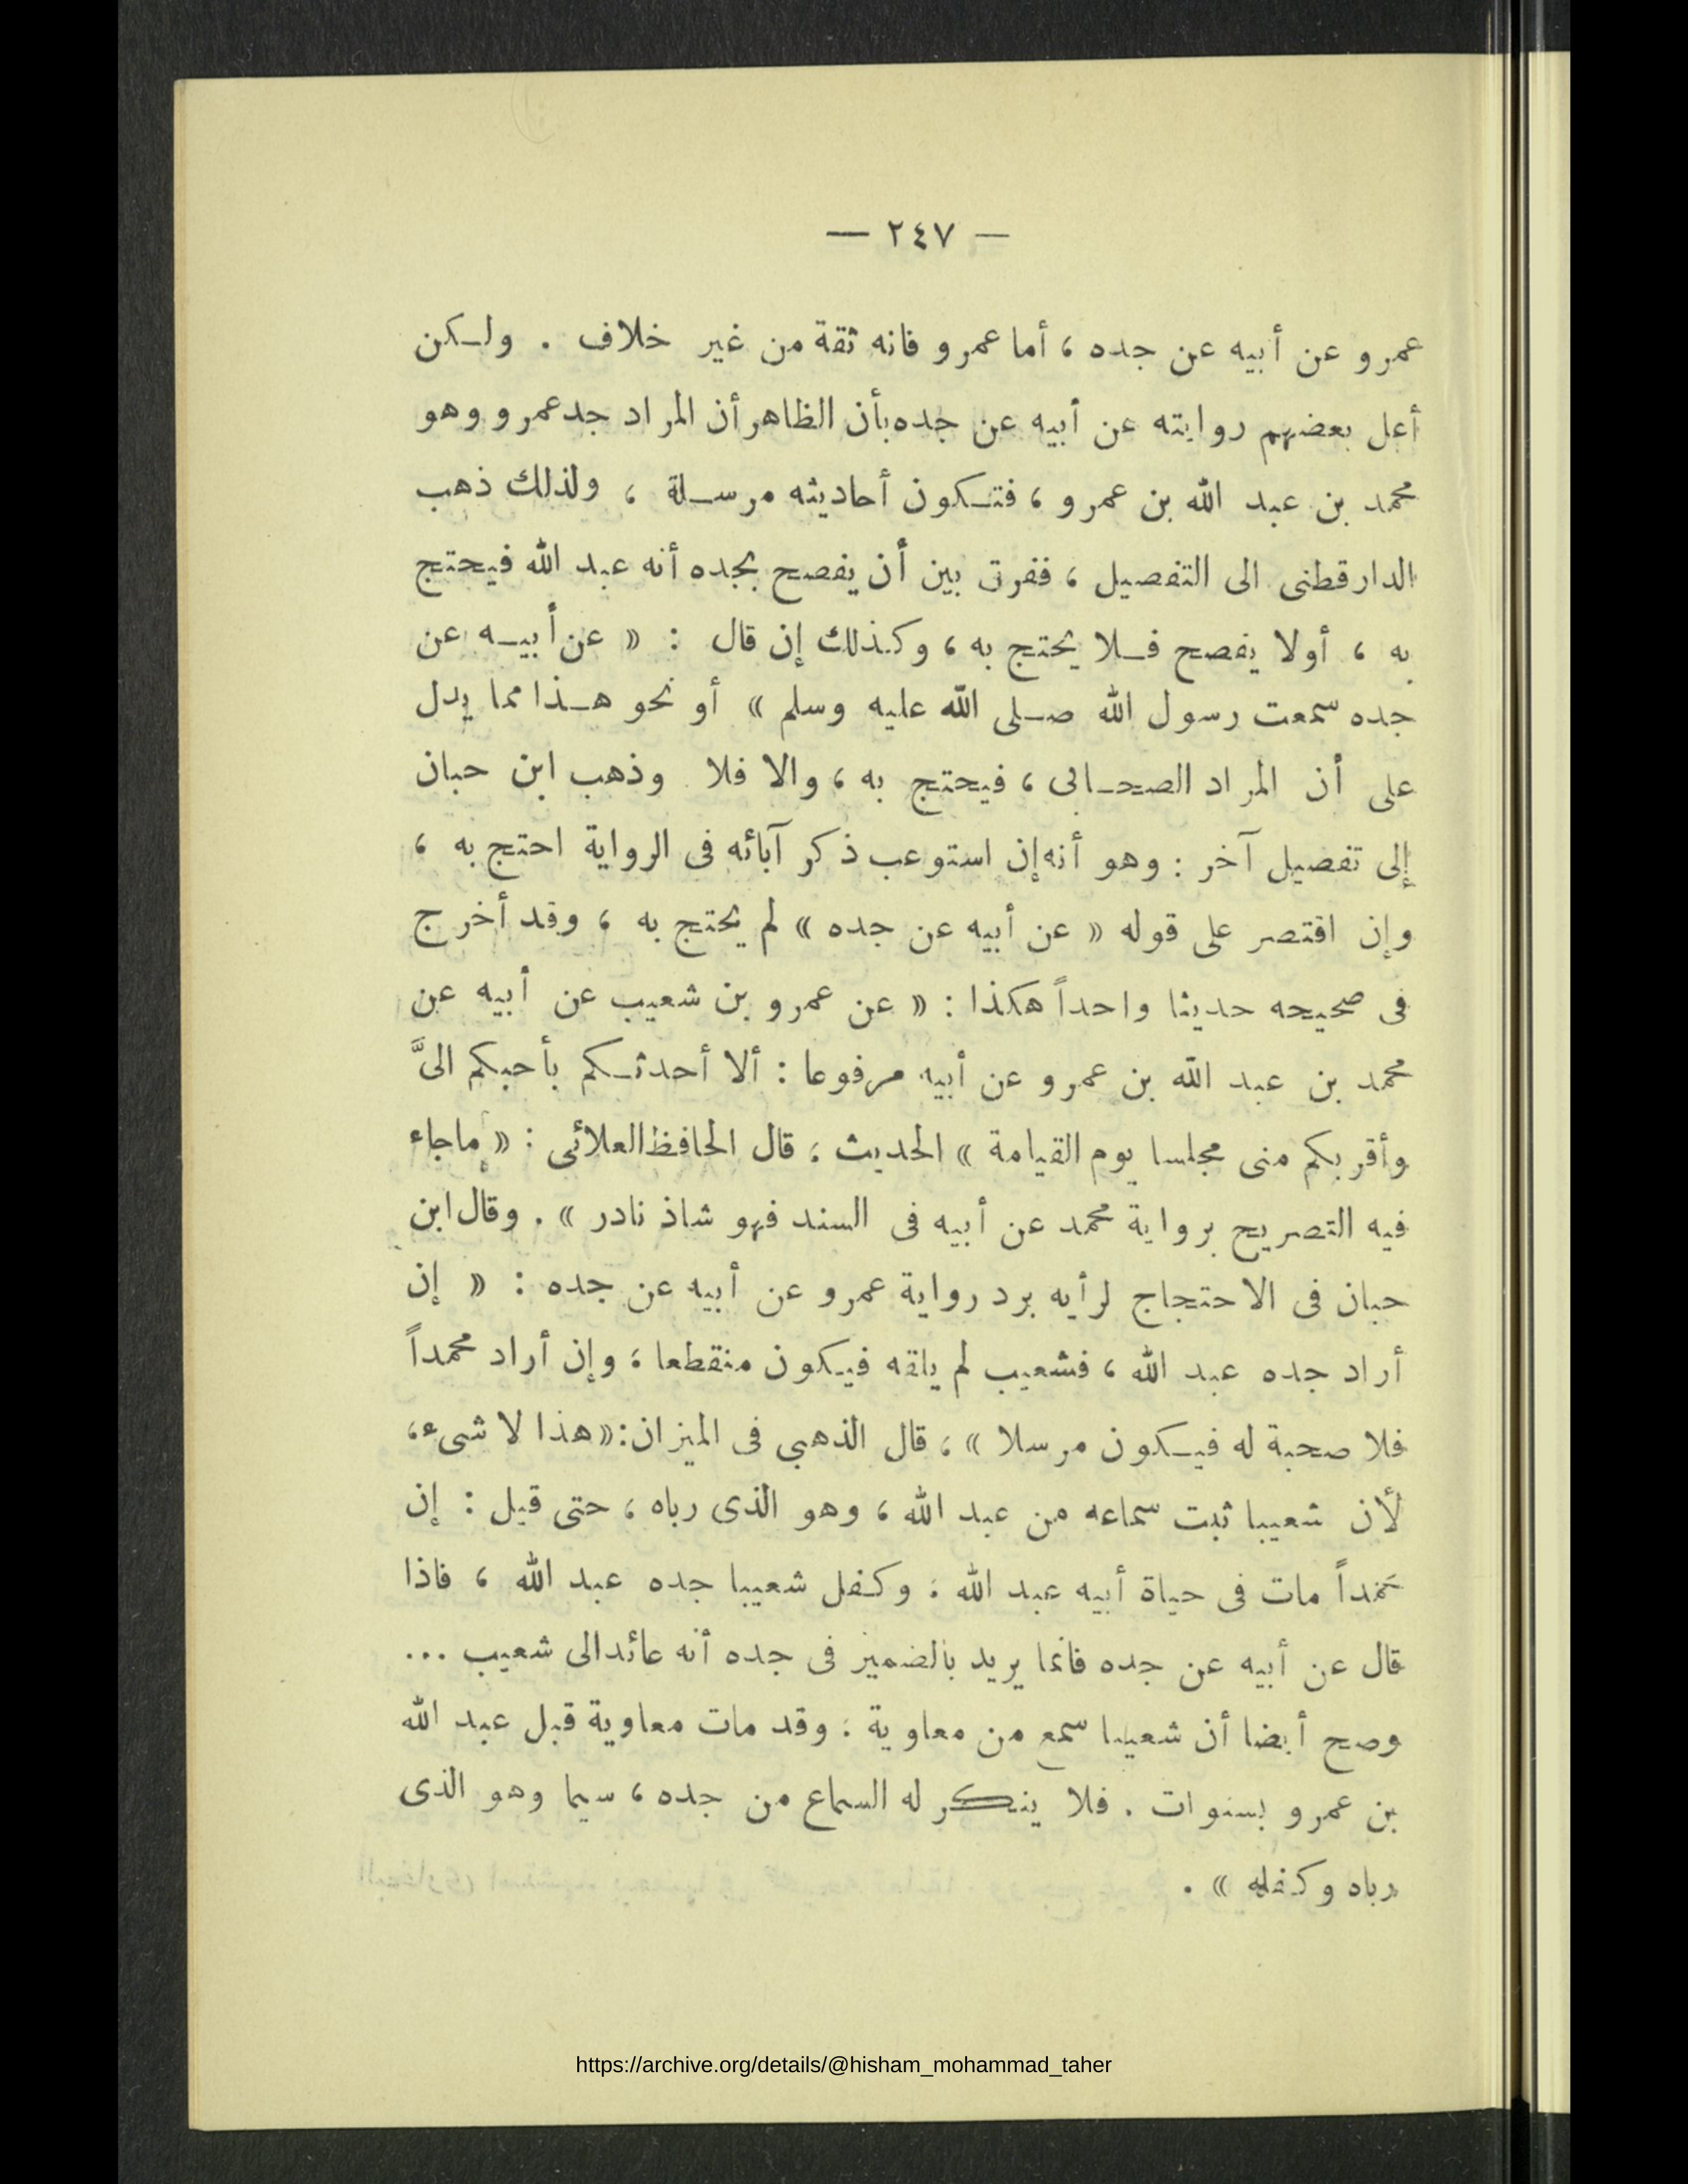 — ٢٤٧ —
عمرو عن أبيه عن جده ، أما عمرو فانه ثقة من غير خلاف . ولكن
أعل بعضهم روايته عن أبيه عن جده بأن الظاهر أن المراد جد عمرو وهو
محمد بن عبد الله بن عمرو ، فتكون أحاديثه مرسلة ، ولذلك ذهب
الدارقطنى الى التفصيل ، ففرق بين أن يفصح بجده أنه عبد الله فيحتج
به ، أولا يفصح فلا يحتج به ، وكذلك إن قال : « عن أبيه عن
جده سمعت رسول الله صلى الله عليه وسلم » أو نحو هذا مما يدل
على أن المراد الصحابى ، فيحتج به ، والا فلا وذهب ابن حبان
إلى تفصيل آخر : وهو أنه إن استوعب ذكر آبائه فى الرواية احتج به ،
وإن اقتصر على قوله « عن أبيه عن جده » لم يحتج به ، وقد أخرج
فى صحيحه حديثا واحداً هكذا : « عن عمرو بن شعيب عن أبيه عن
محمد بن عبد الله بن عمرو عن أبيه مرفوعا : ألا أحدثكم بأحبكم الىَّ
وأقربكم منى مجلسا يوم القيامة » الحديث ، قال الحافظ العلائى : « ماجاء
فيه التصريح برواية محمد عن أبيه فى السند فهو شاذ نادر » . وقال ابن
حبان فى الاحتجاج لرأيه برد رواية عمرو عن أبيه عن جده : « إن
أراد جده عبد الله ، فشعيب لم يلقه فيكون منقطعا ، وإن أراد محمداً
فلا صحبة له فيكون مرسلا » ، قال الذهبى فى الميزان : « هذا لا شىء ،
لأن شعيبا ثبت سماعه من عبد الله ، وهو الذى رباه ، حتى قيل : إن
محمداً مات فى حياة أبيه عبد الله ، وكفل شعيبا جده عبد الله ، فاذا
قال عن أبيه عن جده فانما يريد بالضمير فى جده أنه عائد الى شعيب ...
وصح أيضا أن شعيبا سمع من معاوية ، وقد مات معاوية قبل عبد الله
بن عمرو بسنوات . فلا ينكر له السماع من جده ، سيما وهو الذى
رباه وكفله » .
https://archive.org/details/@hisham_mohammad_taher